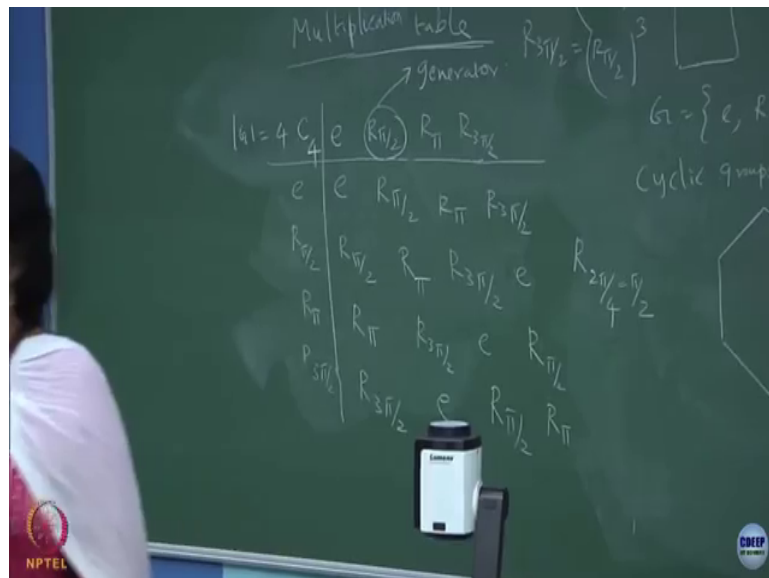 Multiplication table
R3π/2 = (Rπ/2)^3
generator
G = { e, R
Cyclic group
|G| = 4 C4 e Rπ/2 Rπ R3π/2
e e Rπ/2 Rπ R3π/2
Rπ/2 Rπ/2 Rπ R3π/2 e R2π/4 = π/2
Rπ Rπ R3π/2 e Rπ/2
R3π/2 R3π/2 e Rπ/2 Rπ
Lumens
NPTEL
CDEEP
IIT BOMBAY